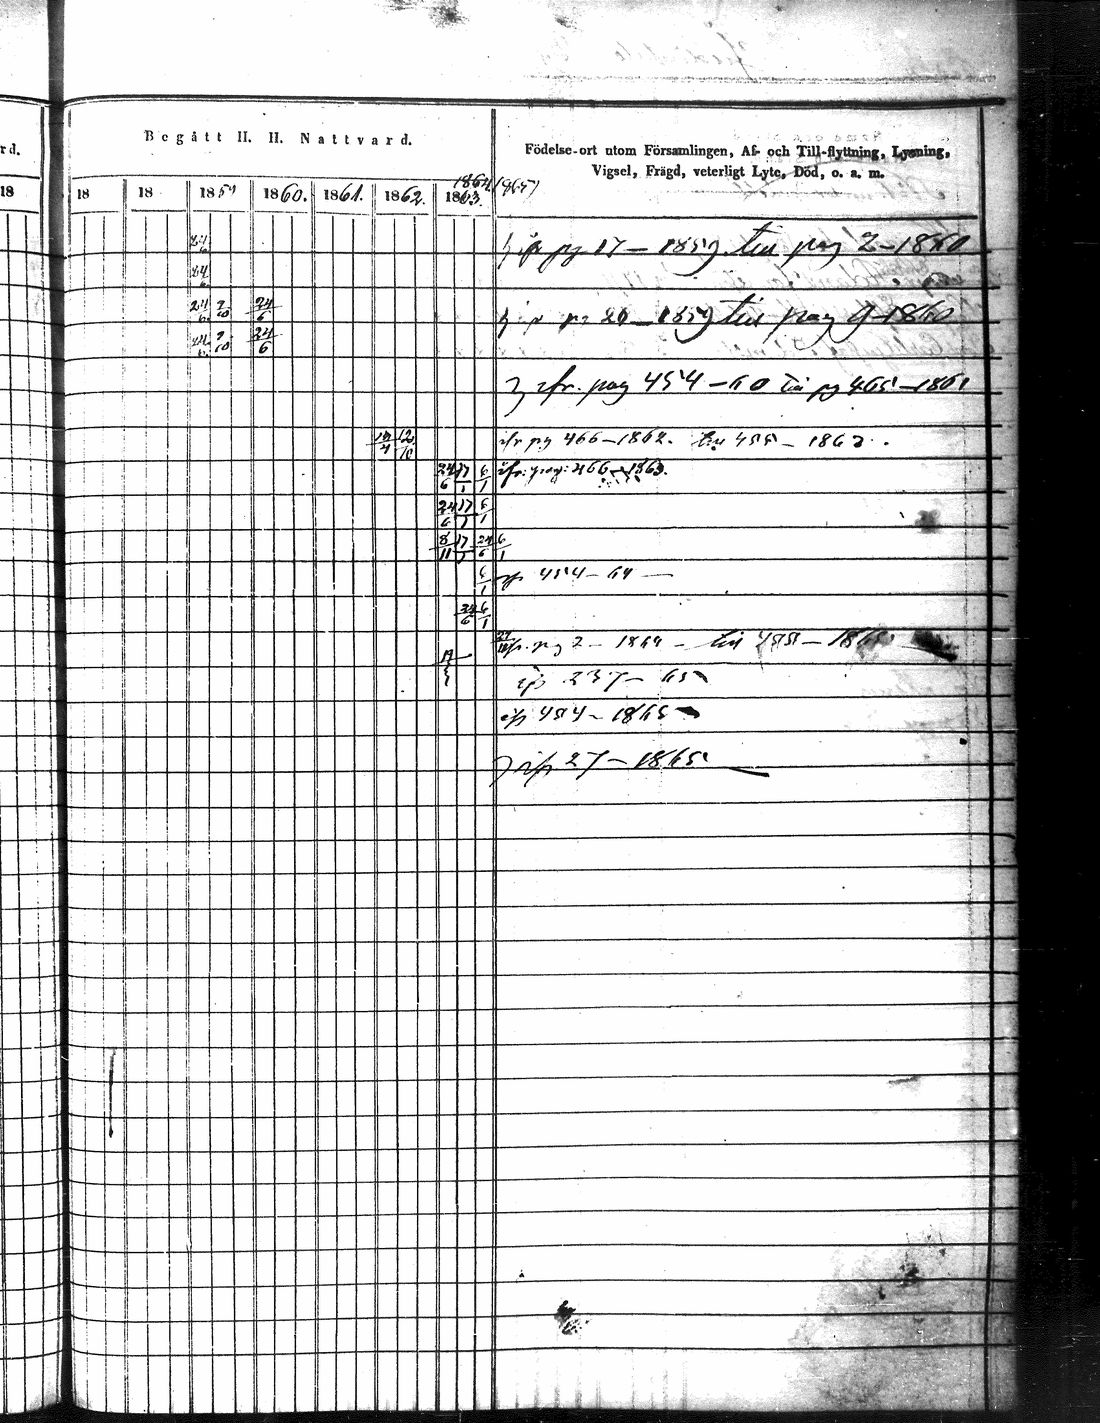 rd.
Begått H. H. Nattvard.
Födelse-ort utom Församlingen, Af- och Till-flyttning, Lysning,
Vigsel, Frägd, veterligt Lyte, Död, o. a. m.
18 18 18 1859 1860. 1861. 1862. 1863. 1864 1865
24/6 ifr pg 17 – 1859 till pag 2 – 1860
24/6
24/6 9/10 24/6 pg 20 – 1859 till pag 9 – 1860
24/6 9/10 24/6
ifr. pag 454 – 60 till pg 465 – 1861
12/10 ifr pg 466 – 1862. till 455 – 1862.
24/6 17/1 6/1 ifr. pag: 466 – 1863.
24/6 17/1 6/1
8/11 17/1 24/6 6/1
6/1 ifr 454 – 64 –
24/6 6/1
ifr. pag 2 – 1864 – till 455 – 1865
19 ifr 237 – 65
ifr 454 – 1865
ifr 27 – 1865